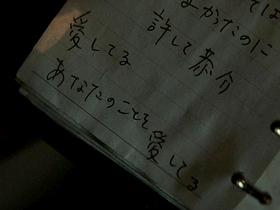 てば
よかったのに
許して恭介
愛してる
あなたのことを愛してる